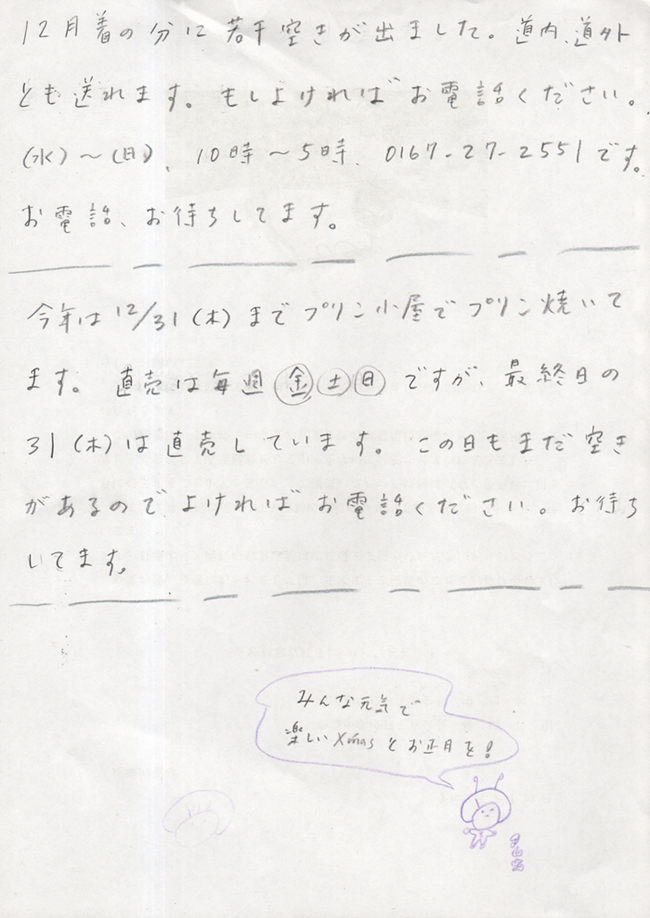 12月着の分に若干空きが出ました。道内、道外
とも送れます。もしよければお電話ください。
(水)～(日)、10時～5時、0167-27-2551です。
お電話、お待ちしてます。
今年は12/31(木)までプリン小屋でプリン焼いて
ます。直売は毎週金土日ですが、最終日の
31(木)は直売しています。この日もまだ空き
があるのでよければお電話ください。お待ち
いてます。
みんな元気で
楽しいXmasとお正月を!